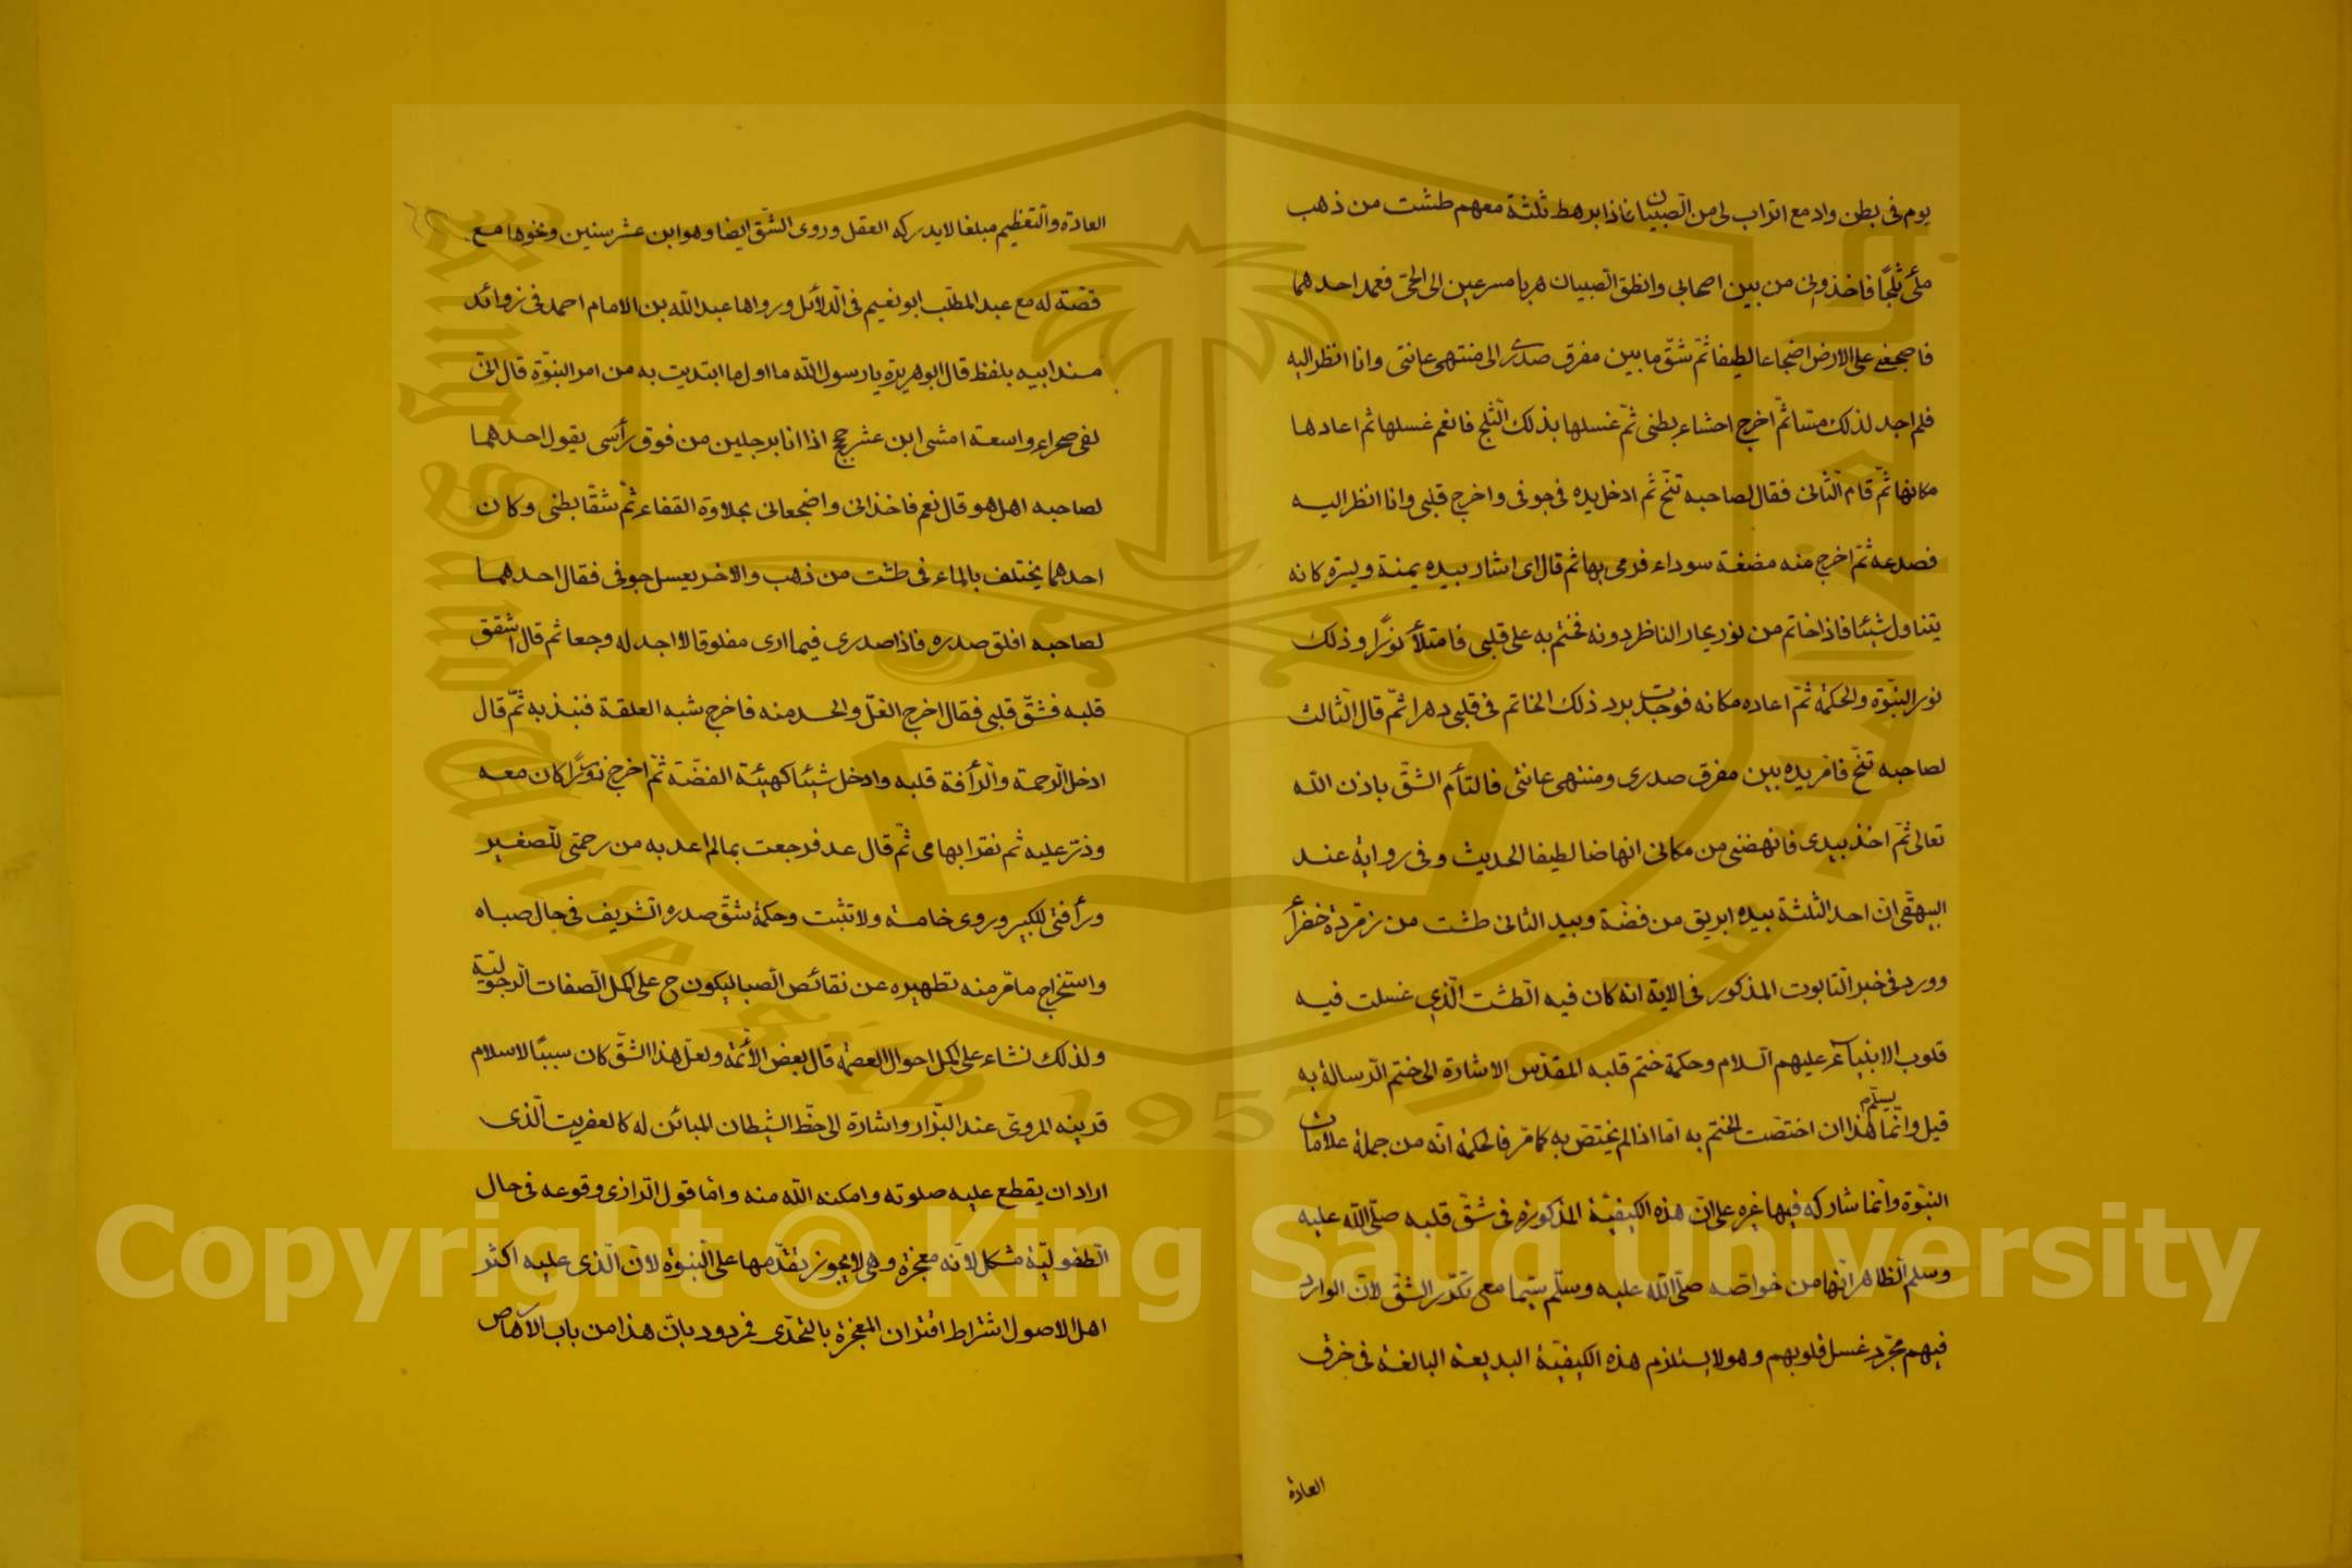 يوم فى بطن واد مع اتراب لى من الصّبيان فاذا برهط ثلثة معهم طشت من ذهب
ملئ ثلجًا فاخذونى من بين اصحابى وانطلق الصبيان هربا مسرعين الى الحىّ فعمد احدهما
فاضجعنى على الارض اضجاعا لطيفا ثمّ شقّ ما بين مفرق صدرى الى منتهى عانتى وانا انظر اليه
فلم اجد لذلك مسّا ثمّ اخرج احشاء بطنى ثمّ غسلها بذلك الثّلج فانعم غسلها ثم اعادها
مكانها ثمّ قام الثّانى فقال لصاحبه تنحّ ثم ادخل يده فى جوفى واخرج قلبى وانا انظر اليه
فصدعه ثمّ اخرج منه مضغة سوداء فرمى بها ثم قال اى اشار بيده يمنة ويسرة كانه
يتناول شيئا فاذا خاتم من نور يحار الناظر دونه فختم به على قلبى فامتلأ نورًا وذلك
نور النبّوة والحكمة ثمّ اعاده مكانه فوجدت برد ذلك الخاتم فى قلبى دهرا ثمّ قال الثّالث
لصاحبه تنحّ فامرّ يده بين مفرق صدرى ومنتهى عانتى فالتأم الشقّ باذن الله
تعالى ثمّ اخذ بيدى فانهضنى من مكانى انهاضا لطيفا الحديث وفى رواية عند
البيهقى انّ احد الثلثة بيده ابريق من فضّة وبيد الثانى طشت من زمرّدة خضرأ
وورد فى خبر التابوت المذكور فى الاية انه كان فيه الطشت الّذى غسلت فيه
قلوب الانبياء عليهم السلام وحكمة ختم قلبه المقدّس الاشارة الى ختم الرسالة به
قيل وانّما يسلّم هذا ان اختصّت الختم به امّا اذا لم يختص به كما مرّ فالحكمة انّه من جملة علامات
النبّوة وانّما شاركه فيها غيره على انّ هذه الكيفيّة المذكورة فى شقّ قلبه صلّى الله عليه
وسلم الظاهر انّها من خواصّه صلّى الله عليه وسلّم سيّما مع تكرّر الشقّ لانّ الوارد
فيهم مجرّد غسل قلوبهم وهو لا يستلزم هذه الكيفيّة البديعة البالغة فى خرق
العادة
العادة والتّعظيم مبلغا لا يدركه العقل وروى الشّق ايضا وهو ابن عشر سنين ونحوها مع
قصّة له مع عبد المطلب ابو نعيم فى الدّلائل ورواها عبد الله بن الامام احمد فى زوائد
مسند ابيه بلفظ قال ابو هريرة يا رسول الله ما اول ما ابتديت به من امر النبوّة قال انّى
لفى صحراء واسعة امشى ابن عشر حجج اذا انا برجلين من فوق رأسى يقول احدهما
لصاحبه اهل هو قال نعم فاخذانى واضجعانى بحلاوة القفاء ثمّ شقّا بطنى وكان
احدهما يختلف بالماء فى طشت من ذهب والاخر يغسل جوفى فقال احدهما
لصاحبه افلق صدره فاذا صدرى فيما ارى مفلوقا لا اجد له وجعا ثم قال اشقق
قلبه فشقّ قلبى فقال اخرج الغلّ والحسد منه فاخرج شبه العلقة فنبذ به ثمّ قال
ادخل الرّحمة والرّأفة قلبه وادخل شيئا كهيئة الفضّة ثمّ اخرج ذرورًا كان معه
وذرّ عليه ثم نقر ابهامى ثمّ قال عد فرجعت بما لم اعد به من رحمتى للّصغير
ورأفتى للكبير وروى خامسة ولا تثبت وحكمة شقّ صدره الشريف فى حال صباه
واستخراج ما مرّ منه تطهيره عن نقائص الّصبا ليكون ح على اكمل الّصفات الرّجوليّة
ولذلك نشاء على اكمل احوال العصمة قال بعض الأئمة ولعلّ هذا الشّقّ كان سببًا لاسلام
قرينه المروىّ عند البزّار واشارة الى حظّ الشيطان المباين له كالعفريت الّذى
اراد ان يقطع عليه صلوته وامكنه الله منه وامّا قول الرازى وقوعه فى حال
الّطفوليّة مشكل لانّه معجزة وهى لا يجوز تقدّمها على النّبوة لانّ الّذى عليه اكثر
اهل الاصول اشتراط اقتران المعجزة بالتحدّى فمردود بانّ هذا من باب الارهاص
King Saud University
1957
Copyright © King Saud University